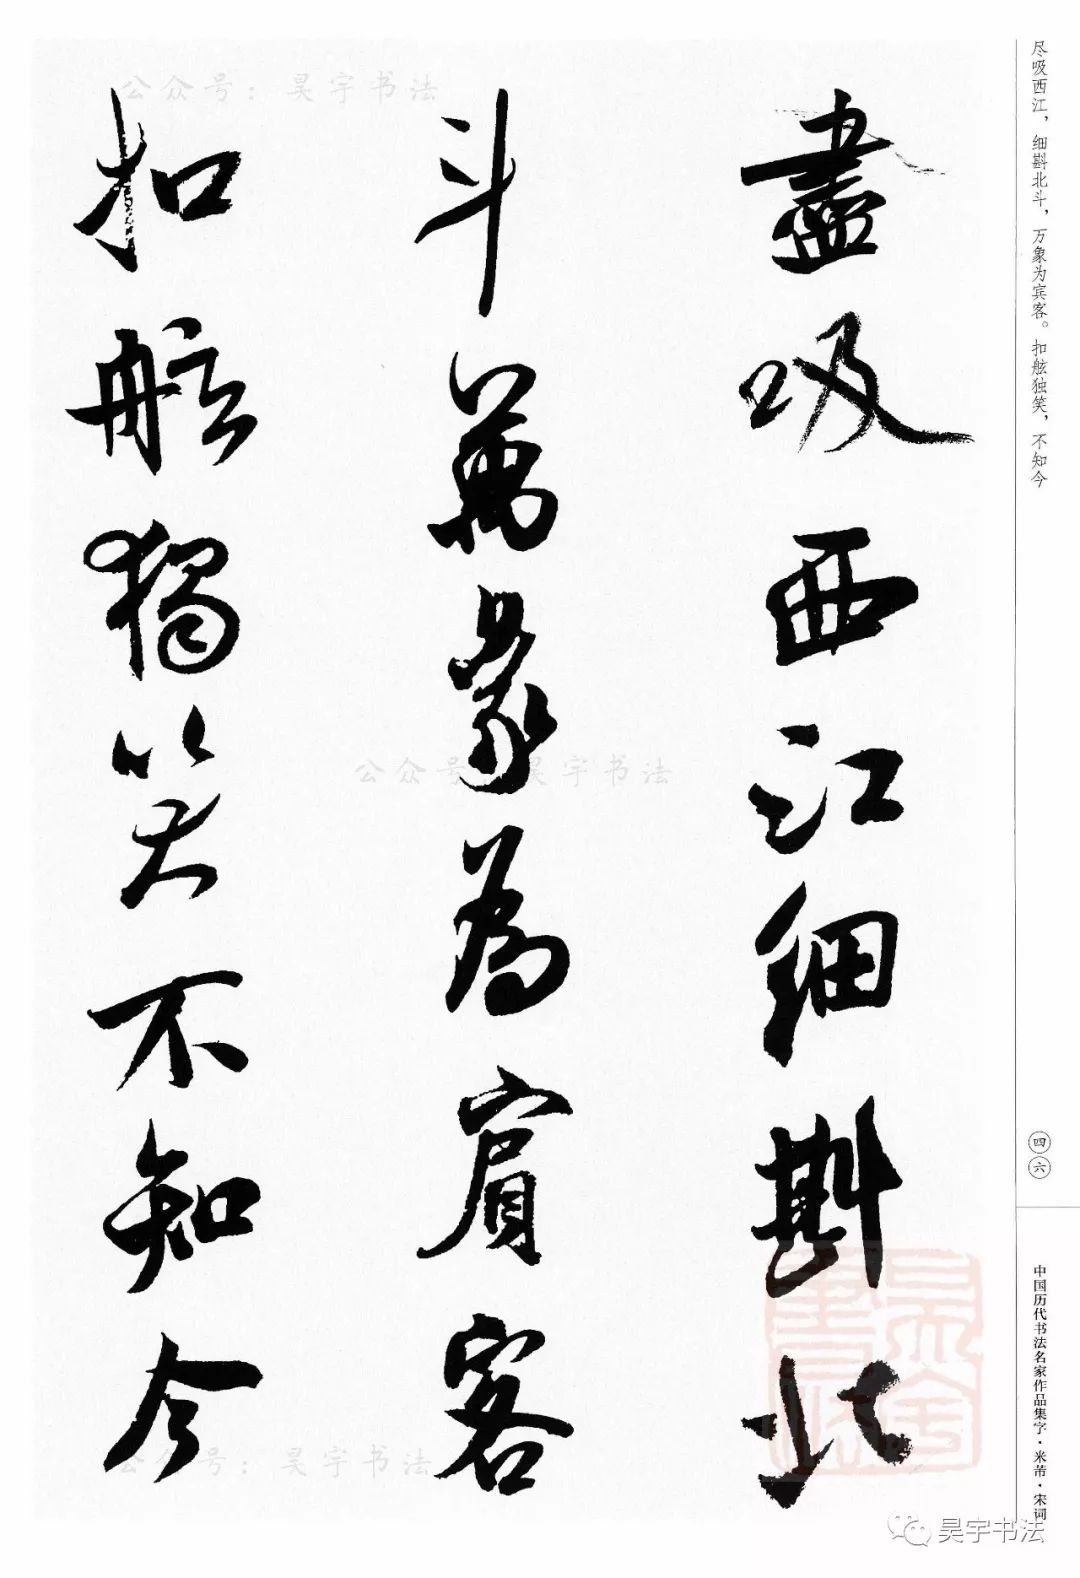 尽吸西江，细斟北斗，万象为宾客。扣舷独笑，不知今
盡吸西江細斟北
斗萬象為賓客
扣舷獨笑不知今
四六
中国历代书法名家作品集字·米芾·宋词
公众号：昊宇书法
公众号：昊宇书法
公众号：昊宇书法
昊宇书法